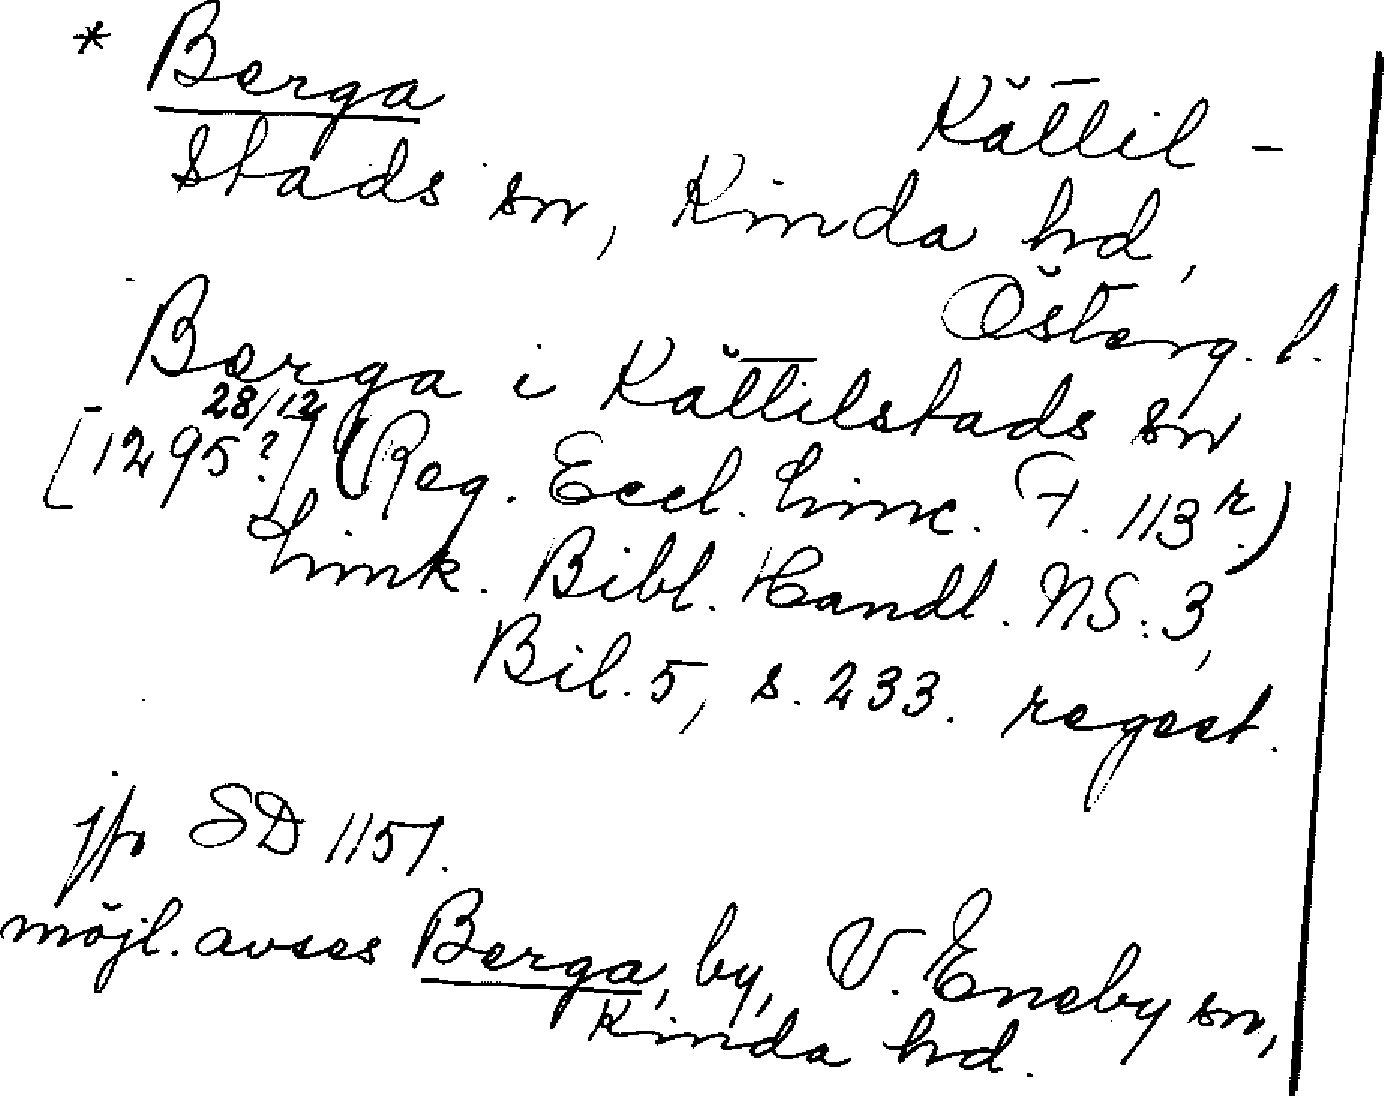 * Berga
Kättil-
stads sn, Kinda hd,
Österg. l.
Berga i Kättilstads sn
28/12
[1295?] (Reg. Eccl. Linc. F. 113r.)
Link. Bibl. Handl. NS: 3,
Bil. 5, s. 233. regest.
jfr SD 1151.
möjl. avses Berga, by, V. Eneby sn,
Kinda hd.